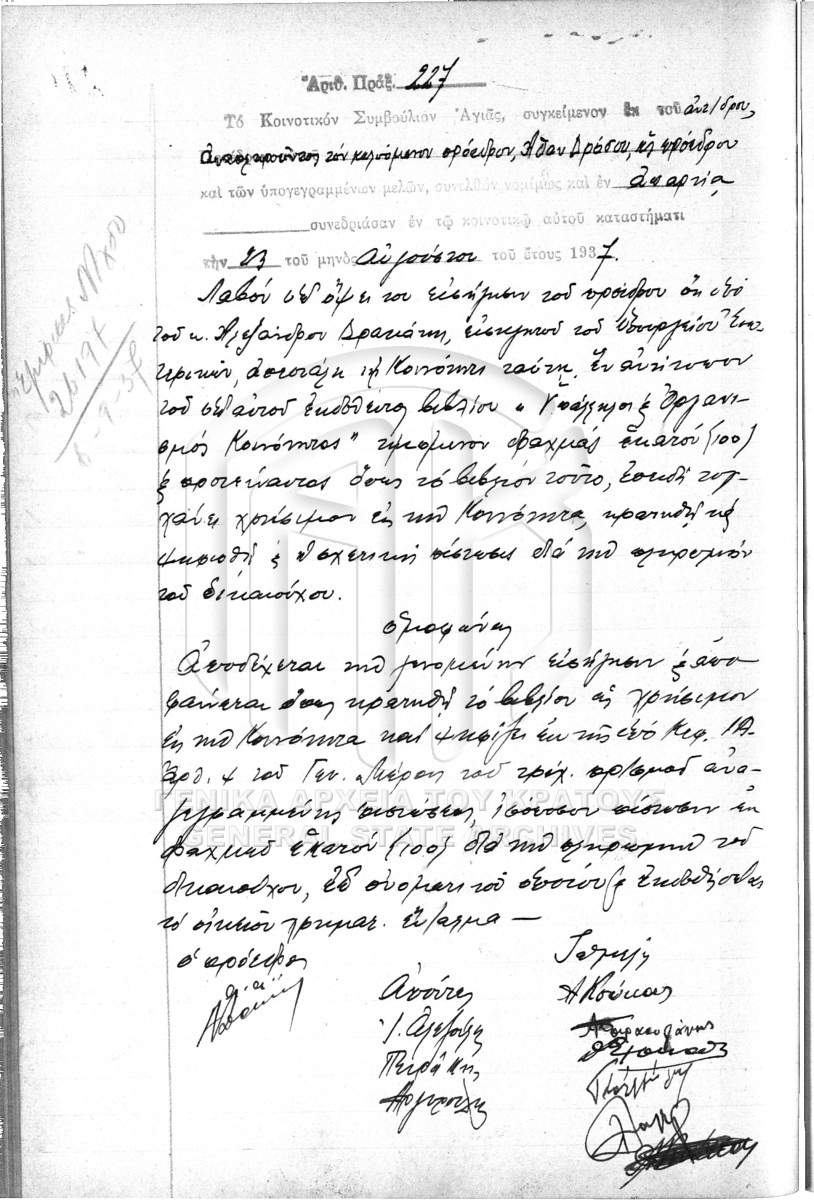 Ἀριθ. Πράξ. 227
Τὸ Κοινοτικὸν Συμβούλιον Ἁγιᾶς, συγκείμενον ἐκ τοῦ ἀντ/δρου,
ἀναπληροῦντος τὸν κωλυόμενον πρόεδρον,
καὶ τῶν ὑπογεγραμμένων μελῶν, συνελθὸν νομίμως καὶ ἐν ἀπαρτίᾳ
συνεδριάσαν ἐν τῷ κοινοτικῷ αὐτοῦ καταστήματι
τὴν 23 τοῦ μηνὸς Αὐγούστου τοῦ ἔτους 1937.
Λαβὸν ὑπ' ὄψει του εἰσήγησιν τοῦ προέδρου ὅτι ὑπὸ
τοῦ κ. Ἀλεξάνδρου Δρακάκη, εἰσηγητοῦ τοῦ Ὑπουργείου Ἐσω-
τερικῶν, ἀπεστάλη τῇ Κοινότητι ταύτῃ ἓν ἀντίτυπον
τοῦ ὑπ' αὐτοῦ ἐκδοθέντος βιβλίου « Ὑπάλληλοι & Ὀργανι-
σμὸς Κοινότητος" τιμώμενον δραχμὰς ἑκατόν (100)
& προτείναντος ὅπως τὸ βιβλίον τοῦτο, ἐπειδὴ τυγ-
χάνει χρήσιμον εἰς τὴν Κοινότητα, κρατηθῇ καὶ
ψηφισθῇ ἡ σχετικὴ πίστωσις διὰ τὴν πληρωμὴν
τοῦ δικαιούχου.
ὁμοφώνως
Ἀποδέχεται τὴν γενομένην εἰσήγησιν & ἀπο-
φαίνεται ὅπως κρατηθῇ τὸ βιβλίον ὡς χρήσιμον
εἰς τὴν Κοινότητα καὶ ψηφίζει ἐκ τῆς ὑπὸ Κεφ. ΙΑ
Ἄρθ. 4 τοῦ Γεν. Μέρους τοῦ τρέχ. πρ/σμοῦ ἀνα-
γεγραμμένης πιστώσεως, ἰσόποσον πίστωσιν ἐκ
δραχμῶν ἑκατόν (100) διὰ τὴν πληρωμὴν τοῦ
δικαιούχου, ἐπ' ὀνόματι τοῦ ὁποίου & ἐκδοθήσεται
τὸ οἰκεῖον χρηματ. ἔνταλμα —
ὁ πρόεδρος
Τὰ μέλη
ΓΕΝΙΚΑ ΑΡΧΕΙΑ ΤΟΥ ΚΡΑΤΟΥΣ
GENERAL STATE ARCHIVES